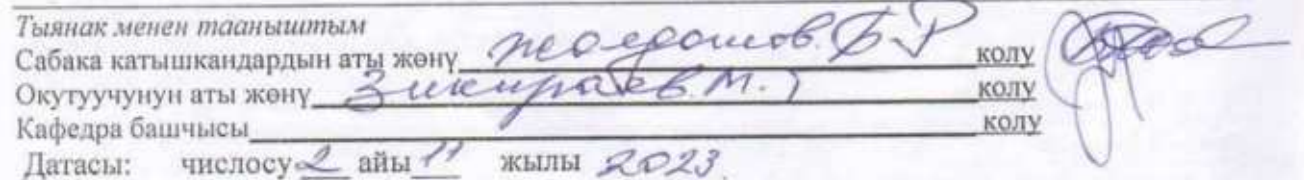 Тыянак менен тааныштым
Сабака катышкандардын аты жөнү Жолдошов. Б Р колу
Окутуучунун аты жөнү Зикираев. М. колу
Кафедра башчысы колу
Датасы: числосу 2 айы 11 жылы 2023